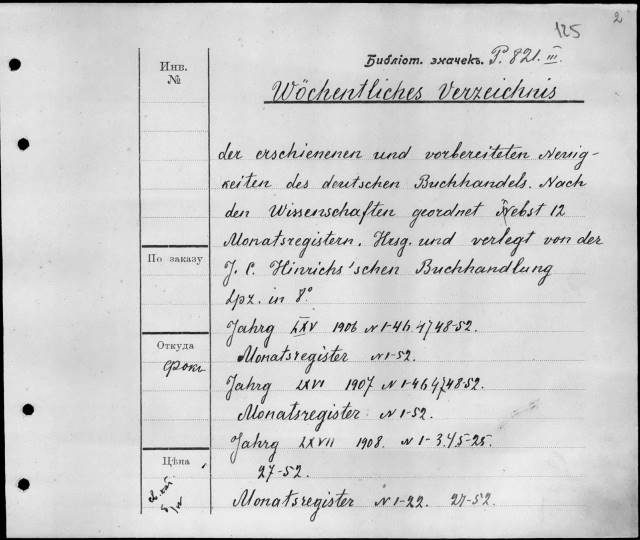 2
125
Инв.
№
Библіот. значекъ. P. 821. III.
Wöchentliches Verzeichnis
der erschienenen und vorbereiteten Neuig-
keiten des deutschen Buchhandels. Nach
den Wissenschaften geordnet Nebst 12
Monatsregistern. Hrsg. und verlegt von der
По заказу
J. C. Hinrichs'schen Buchhandlung
Lpz. in 8°
Jahrg LXV 1906 N 1-46. 47/48-52.
Откуда
Monatsregister N 1-52.
Jahrg LXVI 1907 N 1-46 47/48-52.
Monatsregister N 1-52.
Jahrg LXVII 1908. N 1-3. 4/5-25.
Цѣна
27-52.
Monatsregister N 1-22. 27-52.